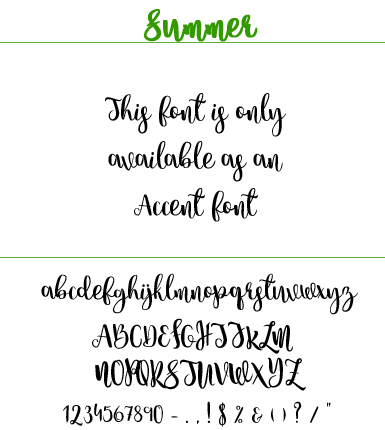 Summer
This font is only
available as an
Accent font
abcdefghijklmnopqrstuvwxyz
ABCDEFGHIJKLM
NOPQRSTUVWXYZ
1234567890 - . , ! $ % & ( ) ? / "